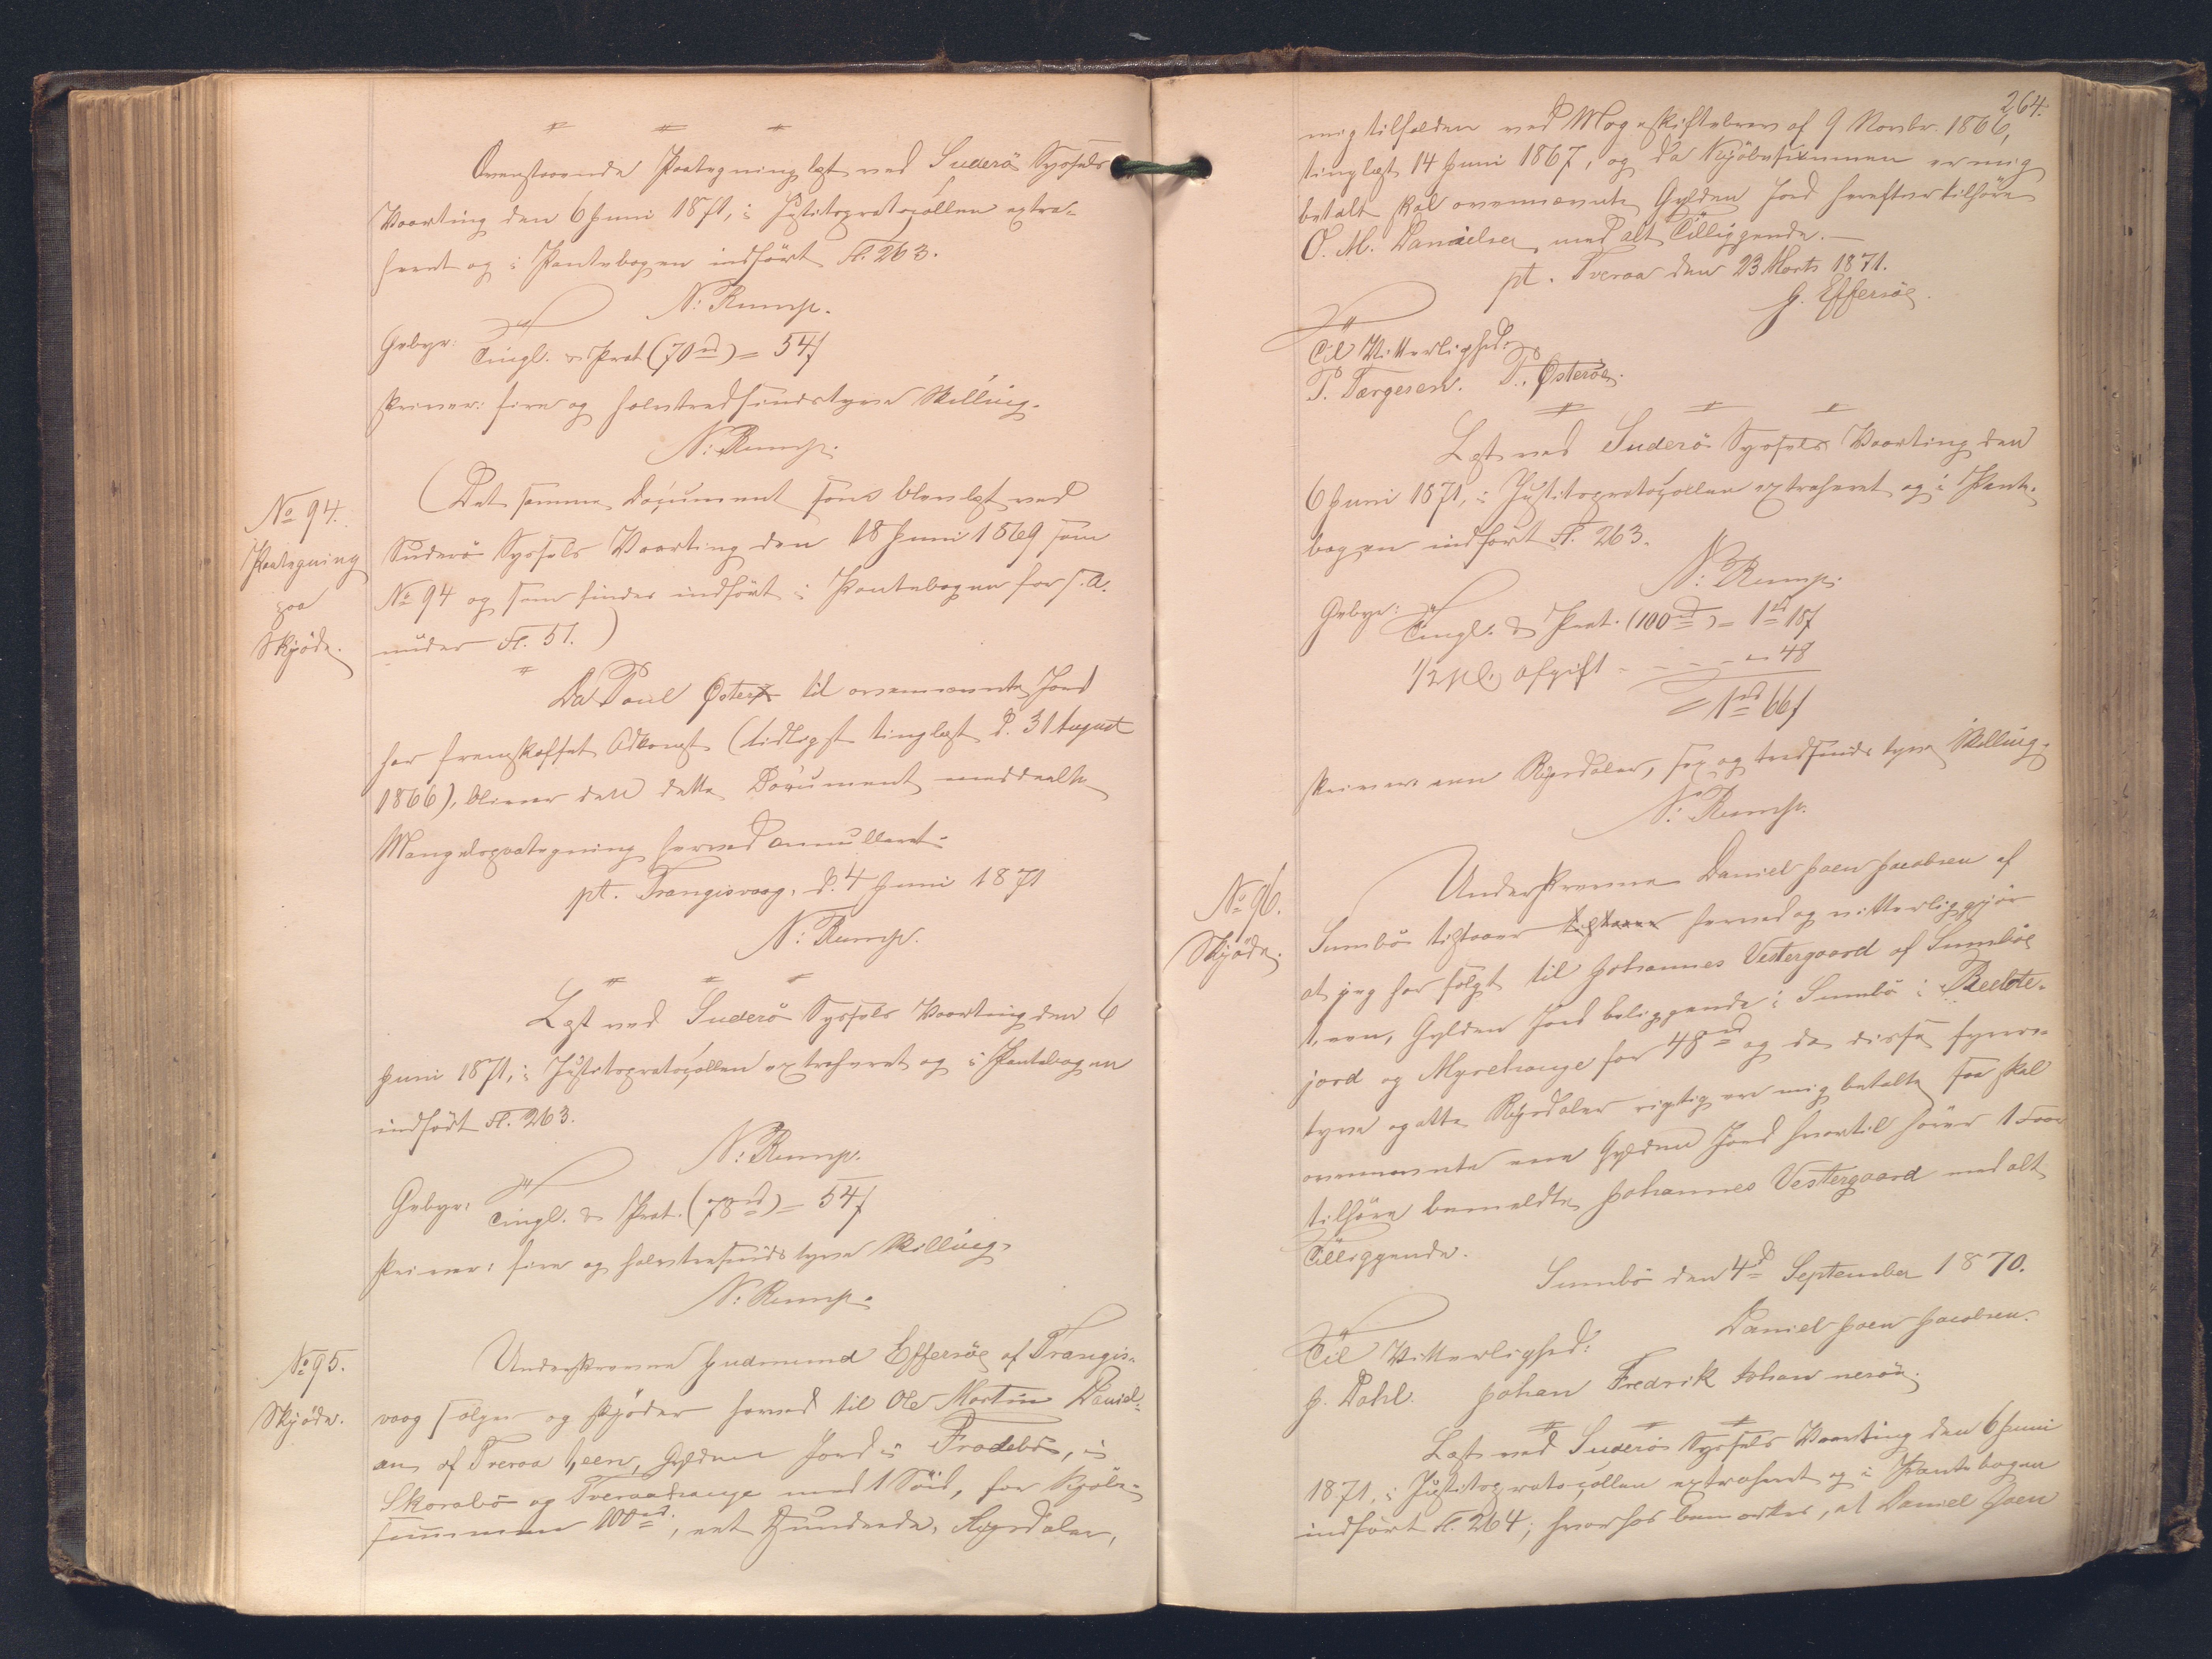 Ovenstaaende Paategning læst ved Suderö Syssels
Vaarting den 6 Juni 1871, i Justitsprotocollen extra-
heret og i Pantebogen indført Fl. 263.
N: Rump.
Gebyr: Tingl. & Prot (70 rd) = 54 ſ
skriver: fire og halvtredsindstyve Skilling.
N: Rump.
No 94.
Paategning
paa
Skjöde.
(Det samme Document som blev læst ved
Suderö Syssels Vaarting den 18 Juni 1869 som
No 94 og som findes indført i Pantebogen for s. A.
under Fl. 51.)
Da Poul Øster til ovennævnte Jord
har fremskaffet Adkomst (tidligst tinglæst d. 31 August
1866), bliver den dette Document meddeelte
Mangelspaategning herved annulleret.
pt. Trangisvaag, d. 4 Juni 1871
N: Rump.
Læst ved Suderö Syssels Vaarting den 6
Juni 1871, i Justitsprotocollen extraheret og i Pantebogen
indført Fl. 263.
N: Rump.
Gebyr: Tingl. & Prot. (78 rd) = 54 ſ
skriver: fire og halvtresindstyve Skilling.
N: Rump.
No 95.
Skjöde.
Underskrevne Gudmund Effersöe af Trangis-
vaag sælger og skjöder herved til Ole Mortin Daniel-
sen af Tveraa 1, een, Gylden Jord i Frodebö, i
Skorabö og Tveraahauge med 1 Söid, for Kjöbe-
summen 100 rd, eet Hundrede, Rigsdaler,
264.
mig tilfalden ved Mageskiftebrev af 9 Novbr. 1866,
tinglæst 14 Juni 1867, og da Kjöbesummen er mig
betalt skal ovennævnte Gylden Jord herefter tilhöre
O. M. Danielsen med alt Tilliggende.
pt. Tveraa den 23 Marts 1871.
G. Effersöe.
Til Vitterlighed:
P. Tærgesen. P. Østeröe.
Læst ved Suderö Syssels Vaarting den
6 Juni 1871, i Justitsprotocollen extraheret og i Pante-
bogen indført Fl. 263.
N: Rump.
Gebyr: Tingl. & Prot. (100 rd) = 1 rd 18 ſ
1/2 pCt Afgift - - - - " - 48
= 1 rd 66 ſ
skriver een Rigsdaler, sex og tredsindstyve Skilling.
N: Rump.
No 96.
Skjöde.
Underskrevne Daniel Joen Jacobsen af
Sumbö tilstaaer tilstaaer herved og vitterliggjör
at jeg har solgt til Johannes Vestergaard af Sumböe
1, een, Gylden Jord beliggende i Sumbö i Beelte-
jord og Myrehauge for 48 rd og da disse fyrre-
tyve og otte Rigsdaler rigtig er mig betalte saa skal
ovennævnte een Gylden Jord hvortil hörer 1 Faar
tilhöre bemeldte Johannes Vestergaard med alt
Tilliggende.
Sumbö den 4 d September 1870.
Daniel Joen Jacobsen.
Til Vitterlighed:
J. Dahl. Johan Fredrik Johannesön.
Læst ved Suderö Syssels Vaarting den 6 Juni
1871, i Justitsprotocollen extraheret og i Pantebogen
indført Fl. 264; hvorhos bemærkes, at Daniel Joen